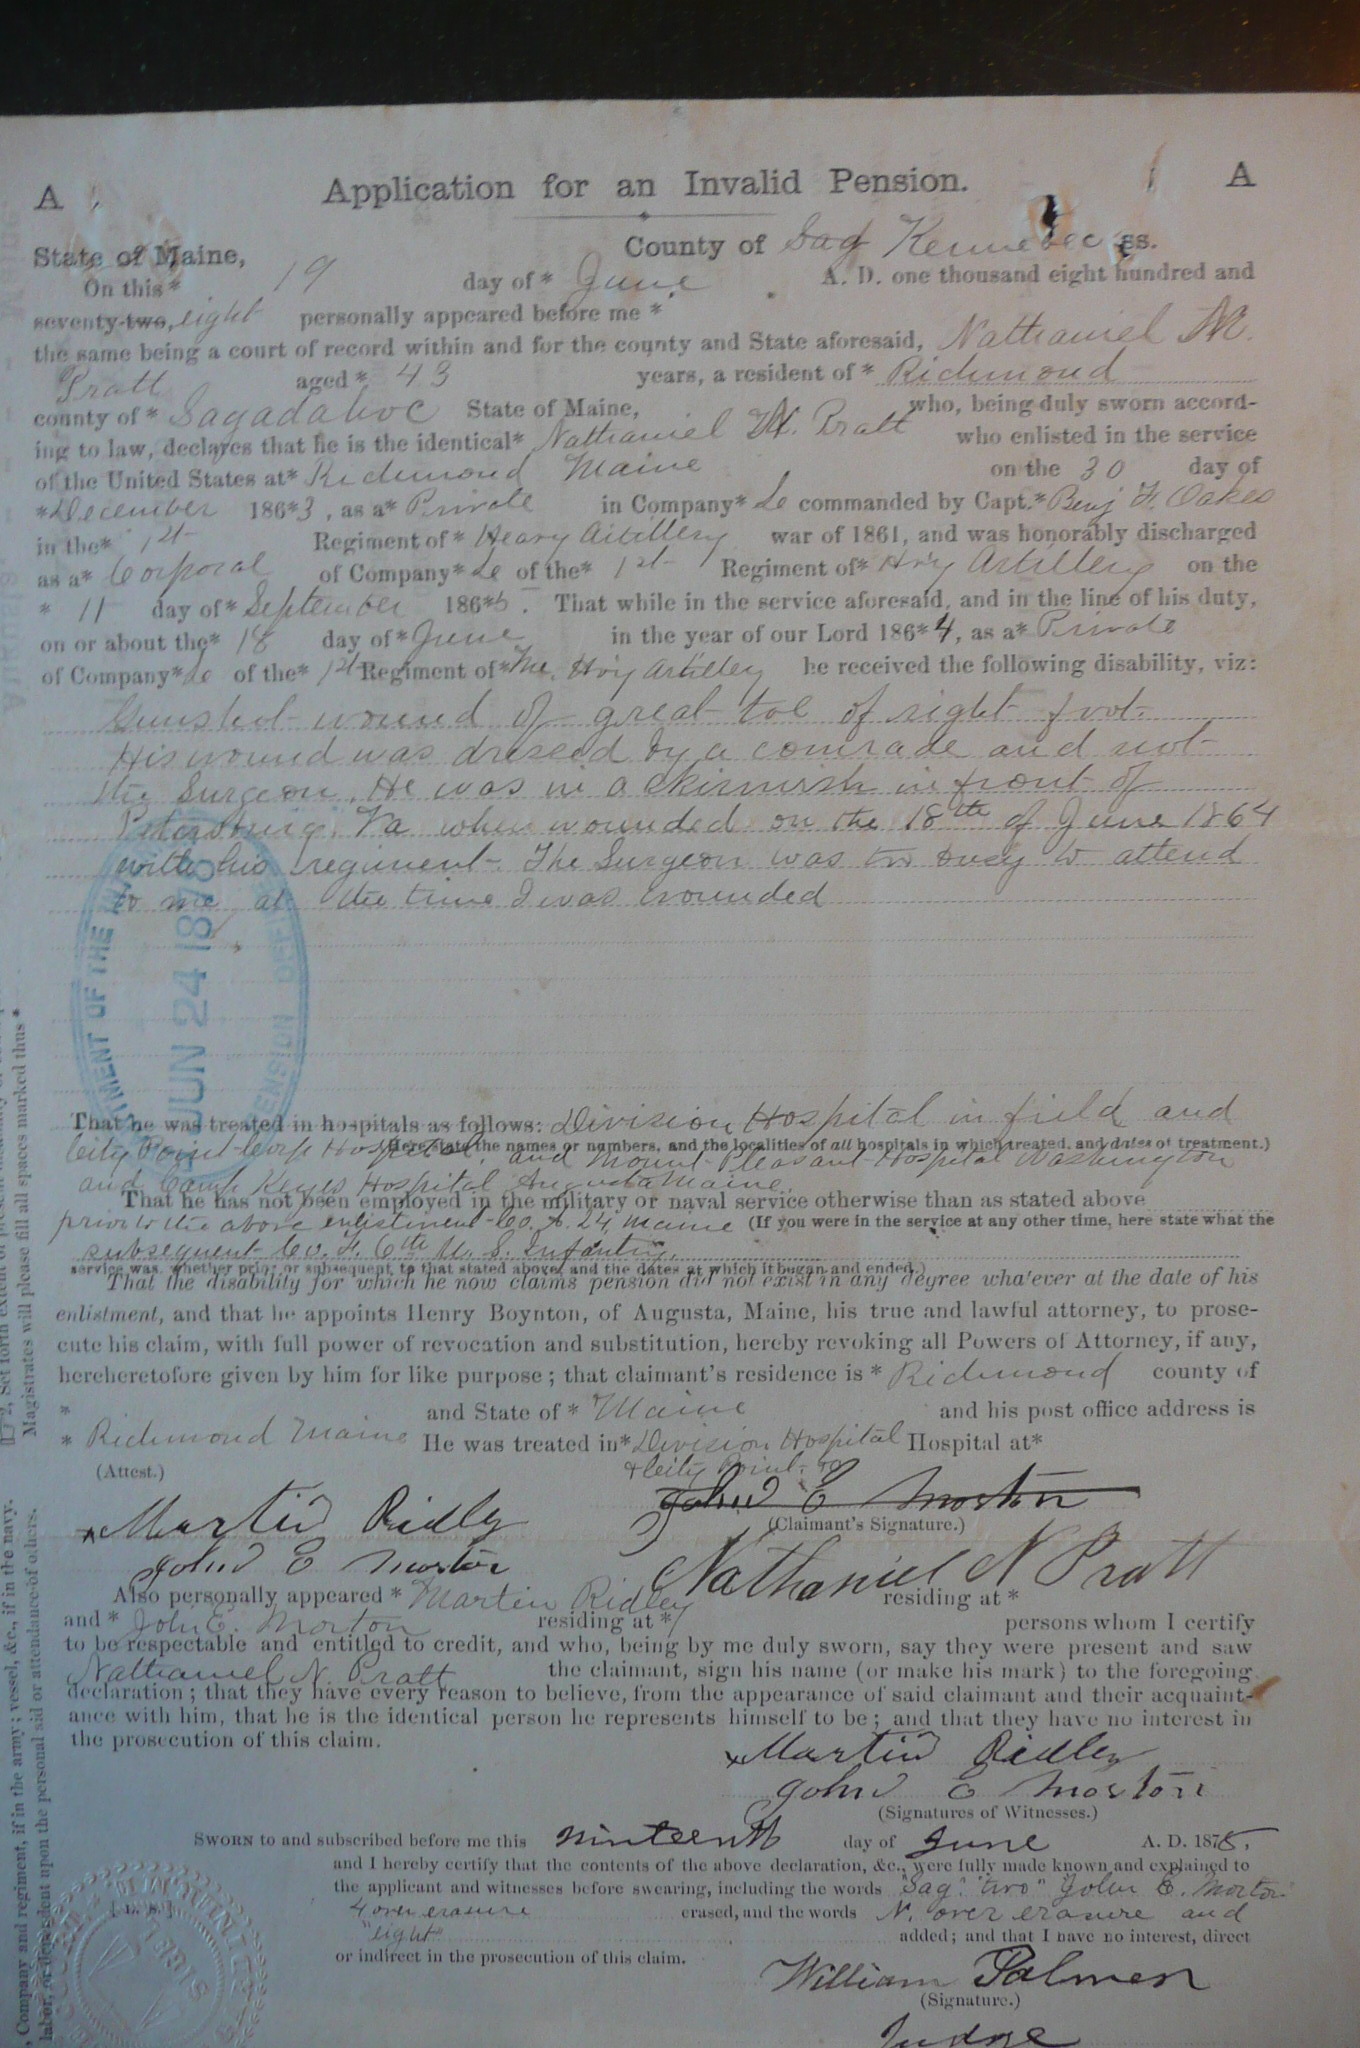 A Application for an Invalid Pension. A
State of Maine, County of Sag Kennebec ss.
On this* 19 day of* June A. D. one thousand eight hundred and
seventy-two, eight personally appeared before me *
the same being a court of record within and for the county and State aforesaid, Nathaniel N.
Pratt aged* 43 years, a resident of* Richmond
county of* Sagadahoc State of Maine, who, being duly sworn accord-
ing to law, declares that he is the identical* Nathaniel N. Pratt who enlisted in the service
of the United States at* Richmond Maine on the 30 day of
*December 186*3, as a* Private in Company* commanded by Capt.* Benj F. Oakes
in the* 1st Regiment of* Heavy Artillery war of 1861, and was honorably discharged
as a* Corporal of Company* of the* 1st Regiment of* Hvy Artillery on the
* 11 day of* September 186*5. That while in the service aforesaid, and in the line of his duty,
on or about the* 18 day of* June in the year of our Lord 186*4, as a* Private
of Company* of the* 1st Regiment of* Me. Hvy Artillery he received the following disability, viz:
Gunshot wound of great toe of right foot.
His wound was dressed by a comrade and not
the Surgeon. He was in a skirmish in front of
Petersburg, Va when wounded on the 18th of June 1864
with his regiment. The Surgeon was too busy to attend
to me at the time I was wounded
MENT OF THE JUN 24 1878 PENSION OFFICE
That he was treated in hospitals as follows: Division Hospital in field and
(Here state the names or numbers, and the localities of all hospitals in which treated, and dates of treatment.)
City Point Corps Hospital, and Mount Pleasant Hospital Washington
and Camp Keyes Hospital Augusta Maine.
That he has not been employed in the military or naval service otherwise than as stated above
prior to the above enlistment Co. A. 24 Maine (If you were in the service at any other time, here state what the
subsequent Co. F. 6th U. S. Infantry.
service was, whether prior or subsequent to that stated above, and the dates at which it began and ended.)
That the disability for which he now claims pension did not exist in any degree whatever at the date of his
enlistment, and that he appoints Henry Boynton, of Augusta, Maine, his true and lawful attorney, to prose-
cute his claim, with full power of revocation and substitution, hereby revoking all Powers of Attorney, if any,
hercheretofore given by him for like purpose; that claimant's residence is* Richmond county of
* and State of* Maine and his post office address is
* Richmond Maine He was treated in* Division Hospital Hospital at*
& City Point
(Attest.) John E Morton
(Claimant's Signature.)
Martin Ridley
John E Morton Nathaniel N Pratt
Also personally appeared* Martin Ridley residing at*
and* John E. Morton residing at* persons whom I certify
to be respectable and entitled to credit, and who, being by me duly sworn, say they were present and saw
Nathaniel N. Pratt the claimant, sign his name (or make his mark) to the foregoing
declaration; that they have every reason to believe, from the appearance of said claimant and their acquaint-
ance with him, that he is the identical person he represents himself to be; and that they have no interest in
the prosecution of this claim.
Martin Ridley
John E Morton
(Signatures of Witnesses.)
SWORN to and subscribed before me this ninteenth day of June A. D. 1878.
and I hereby certify that the contents of the above declaration, &c., were fully made known and explained to
the applicant and witnesses before swearing, including the words "Sag" "two" John E. Morton
4 over erasure erased, and the words N. over erasure and
"eight" added; and that I have no interest, direct
or indirect in the prosecution of this claim.
[L. S.]
William Palmer
(Signature.)
Judge
Magistrates will please fill all spaces marked thus *
, Company and regiment, if in the army; vessel, &c., if in the navy.
labor, or dependent upon the personal aid or attendance of others.